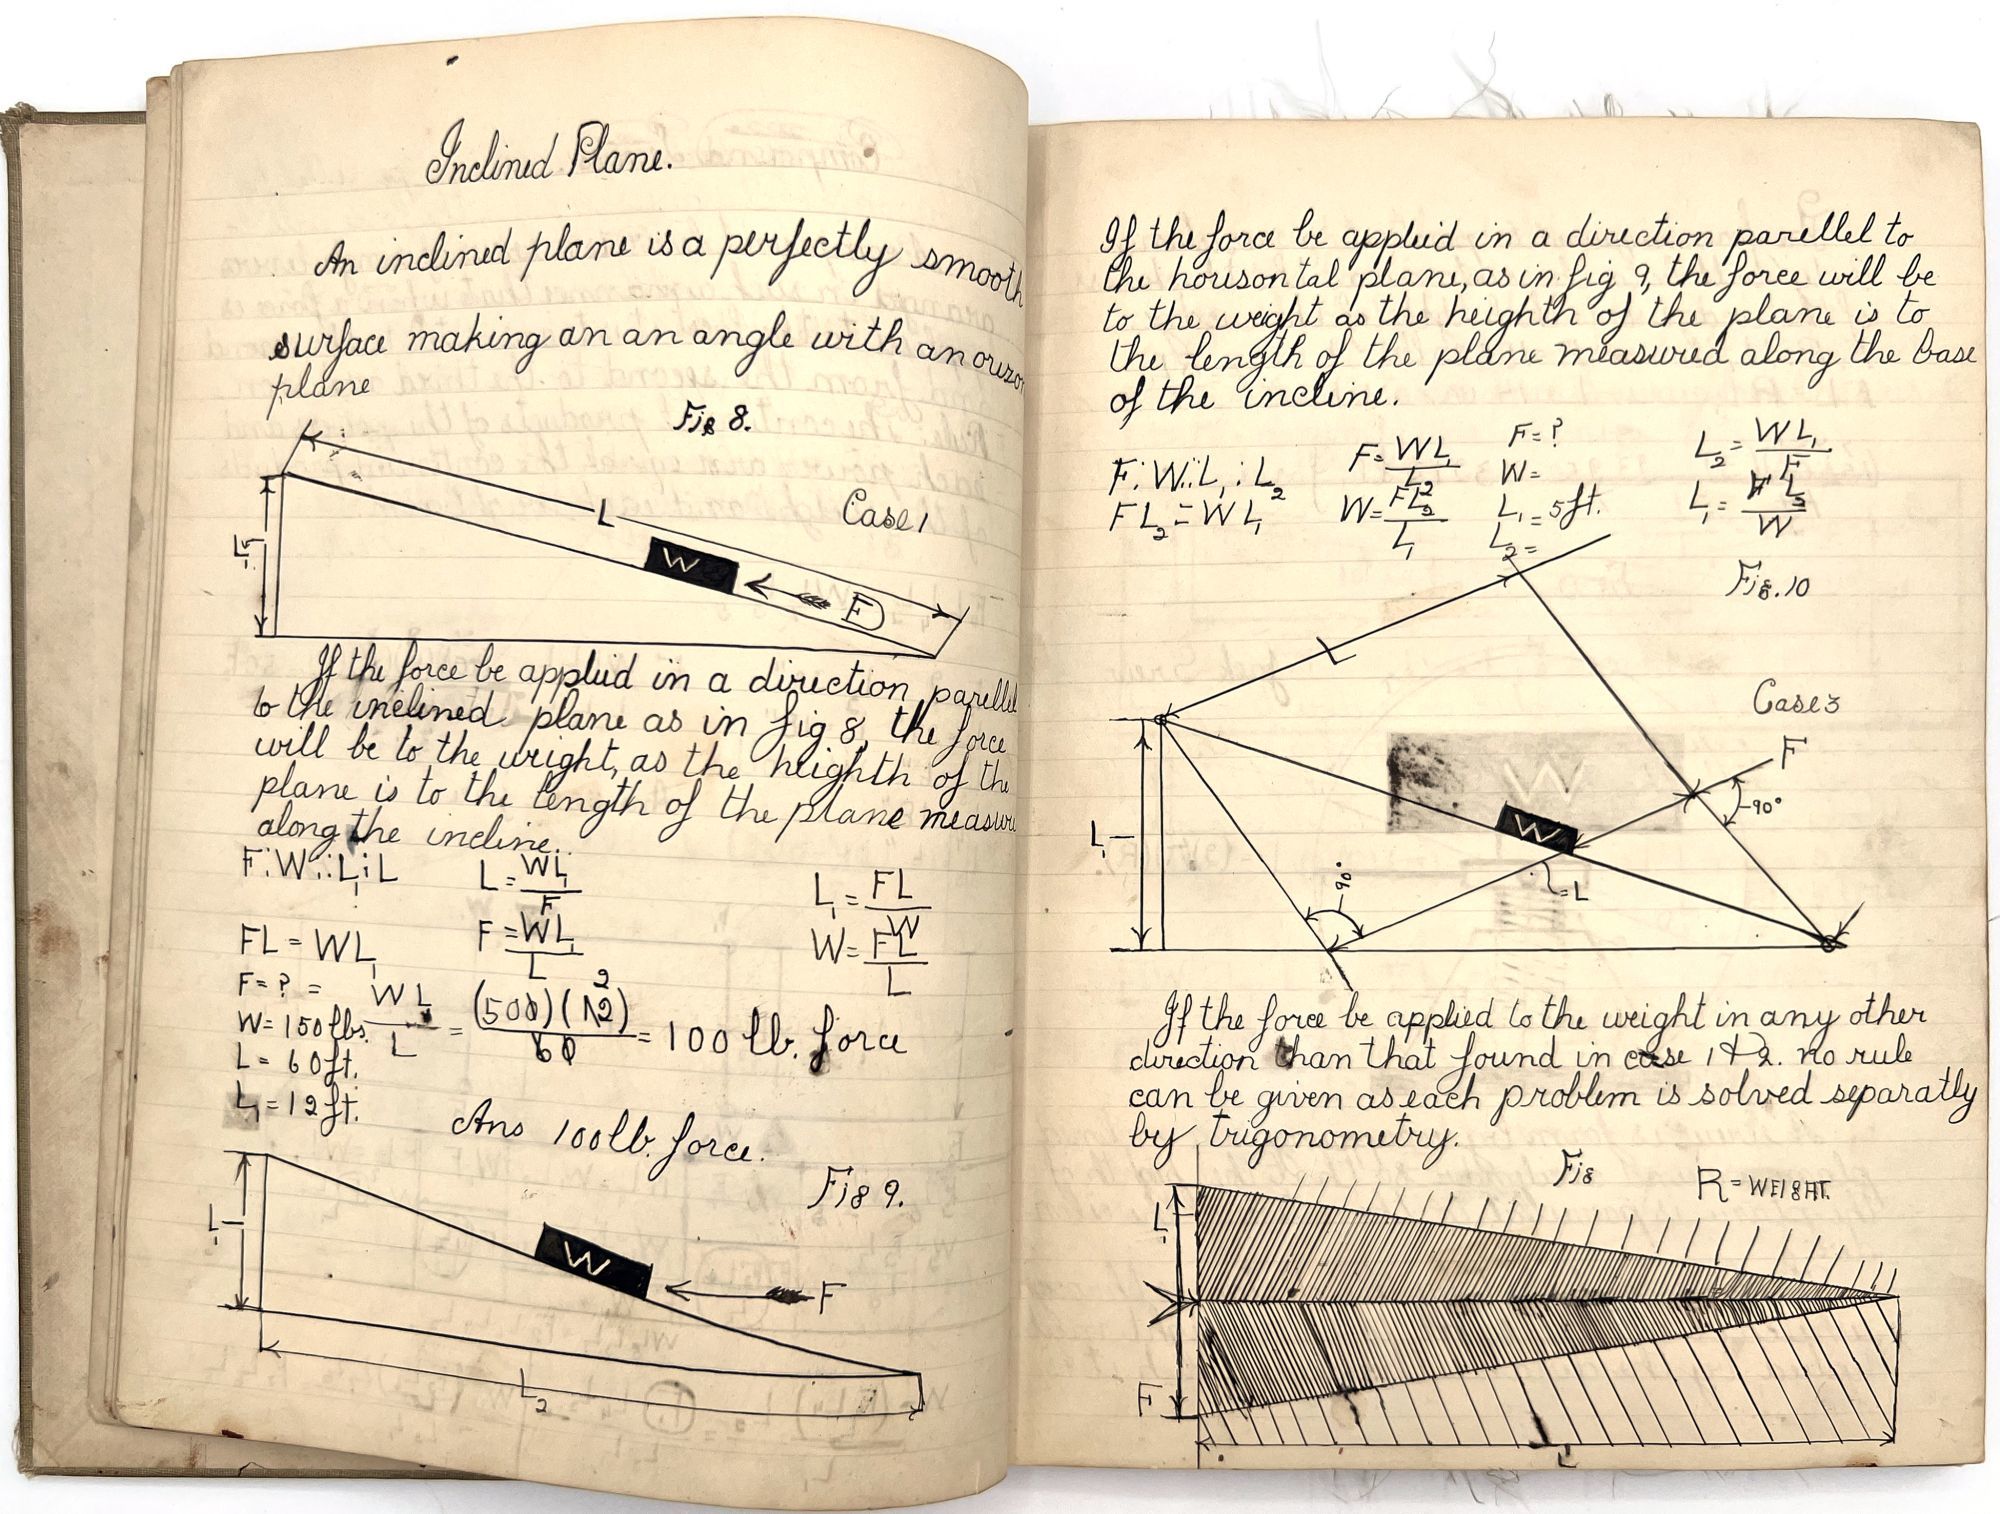 Inclined Plane.
An inclined plane is a perfectly smooth
surface making an an angle with an
plane
Fig 8.
L
Case 1
L1
W
F
If the force be applied in a direction parellel
to the inclined plane as in fig 8, the force
will be to the wright, as the heighth of the
plane is to the length of the plane measure
along the incline.
F:W::L1:L
L = WL1/F
L1 = FL/W
FL = WL1
F = WL1/L
W = FL/L
F = ? = WL/L = (500)(12)/60 = 100 lb. force
2
W = 150 lbs.
L = 60 ft.
L1 = 12 ft.
Ans 100 lb. force.
Fig 9.
L1
W
F
L2
If the force be applied in a direction parellel to
the housontal plane, as in fig 9, the force will be
to the weight as the heighth of the plane is to
the length of the plane measured along the base
of the incline.
F:W::L1:L2
F = WL1/L2
F = ?
L2 = WL1/F
W =
FL2 = WL1
W = FL2/L1
L1 = 5 ft.
L1 = FL2/W
L2 =
Fig. 10
L
Case 3
F
90°
W
L1
90°
= L
If the force be applied to the weight in any other
direction than that found in case 1 & 2. no rule
can be given as each problem is solved separatly
by trigonometry.
Fig
R = WEIGHT.
L1
F
L